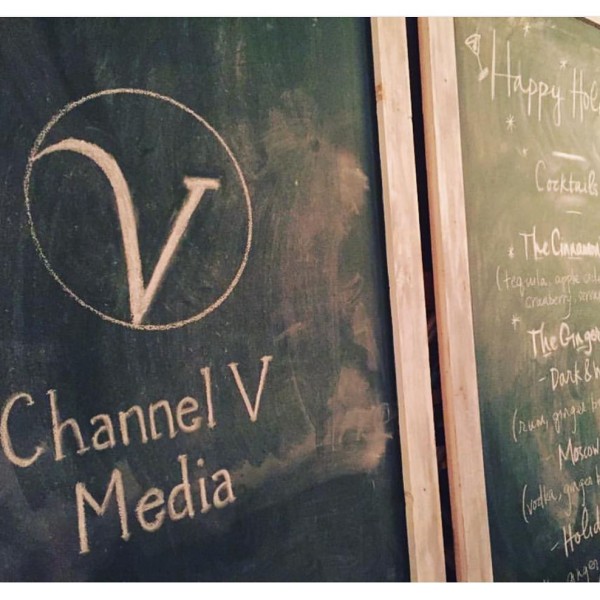 V
Channel V
Media
Happy Hol
Cocktails
* The Cinnamon
(tequila, apple
cranberry,
* The Ginger
- Dark &
(rum, ginger
Moscow
(vodka, ginger
- Holid
ginger